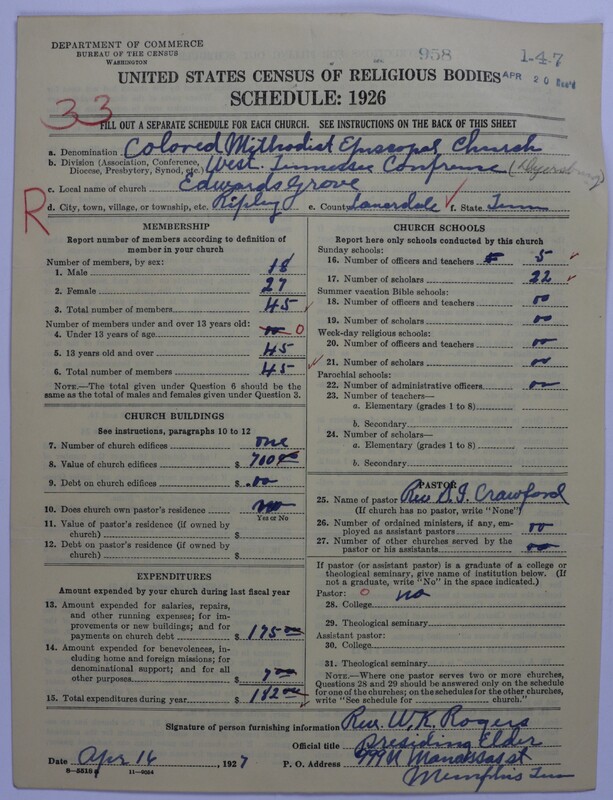 958
1-47
DEPARTMENT OF COMMERCE
BUREAU OF THE CENSUS
WASHINGTON
APR 20 Rec'd
UNITED STATES CENSUS OF RELIGIOUS BODIES
SCHEDULE: 1926
33
FILL OUT A SEPARATE SCHEDULE FOR EACH CHURCH. SEE INSTRUCTIONS ON THE BACK OF THIS SHEET
a. Denomination Colored Methodist Episcopal Church
b. Division (Association, Conference, Diocese, Presbytery, Synod, etc.) West. Tennessee Confrense (Dyersburg)
c. Local name of church Edwards Grove
R
d. City, town, village, or township, etc. Ripley e. County Lauderdale f. State Tenn
MEMBERSHIP
Report number of members according to definition of
member in your church
Number of members, by sex:
1. Male 18
2. Female 27
3. Total number of members 45
Number of members under and over 13 years old:
4. Under 13 years of age oo 0
5. 13 years old and over 45
6. Total number of members 45
NOTE.—The total given under Question 6 should be the
same as the total of males and females given under Question 3.
CHURCH BUILDINGS
See instructions, paragraphs 10 to 12
7. Number of church edifices one
8. Value of church edifices $ 700 00
9. Debt on church edifices $ oo
10. Does church own pastor's residence no
Yes or No
11. Value of pastor's residence (if owned by
church) $
12. Debt on pastor's residence (if owned by
church) $
EXPENDITURES
Amount expended by your church during last fiscal year
13. Amount expended for salaries, repairs,
and other running expenses; for im-
provements or new buildings; and for
payments on church debt $ 175 00
14. Amount expended for benevolences, in-
cluding home and foreign missions; for
denominational support; and for all
other purposes $ 7 00
15. Total expenditures during year $ 182 00
CHURCH SCHOOLS
Report here only schools conducted by this church
Sunday schools:
16. Number of officers and teachers 5
17. Number of scholars 22
Summer vacation Bible schools:
18. Number of officers and teachers oo
19. Number of scholars oo
Week-day religious schools:
20. Number of officers and teachers oo
21. Number of scholars oo
Parochial schools:
22. Number of administrative officers oo
23. Number of teachers—
a. Elementary (grades 1 to 8)
b. Secondary
24. Number of scholars—
a. Elementary (grades 1 to 8)
b. Secondary
PASTOR
25. Name of pastor Rev S. I. Crawford
(If church has no pastor, write "None")
26. Number of ordained ministers, if any, em-
ployed as assistant pastors oo
27. Number of other churches served by the
pastor or his assistants oo
If pastor (or assistant pastor) is a graduate of a college or
theological seminary, give name of institution below. (If
not a graduate, write "No" in the space indicated.)
Pastor: 0 no
28. College
29. Theological seminary
Assistant pastor:
30. College
31. Theological seminary
NOTE.—Where one pastor serves two or more churches,
Questions 28 and 29 should be answered only on the schedule
for one of the churches; on the schedules for the other churches,
write "See schedule for church."
Signature of person furnishing information Rev. W. K. Rogers
Official title Presiding Elder
Date Apr 16, 1927 P. O. Address 999 N Manassas st
Memphis Tenn
8-5510a 11-9064